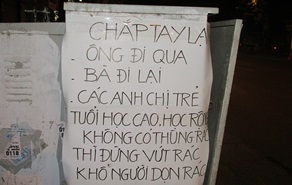 CHẮP TAY LẠ
. ÔNG ĐI QUA
. BÀ ĐI LẠI
. CÁC ANH CHỊ TRẺ
TUỔI HỌC CAO, HỌC RỘN
KHÔNG CÓ THÙNG RÁ
THÌ ĐỪNG VỨT RÁC
KHỔ NGƯỜI DỌN RÁC
0118